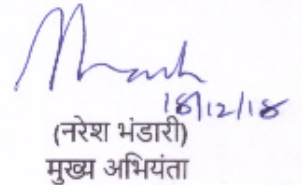 18/12/18
(नरेश भंडारी)
मुख्य अभियंता